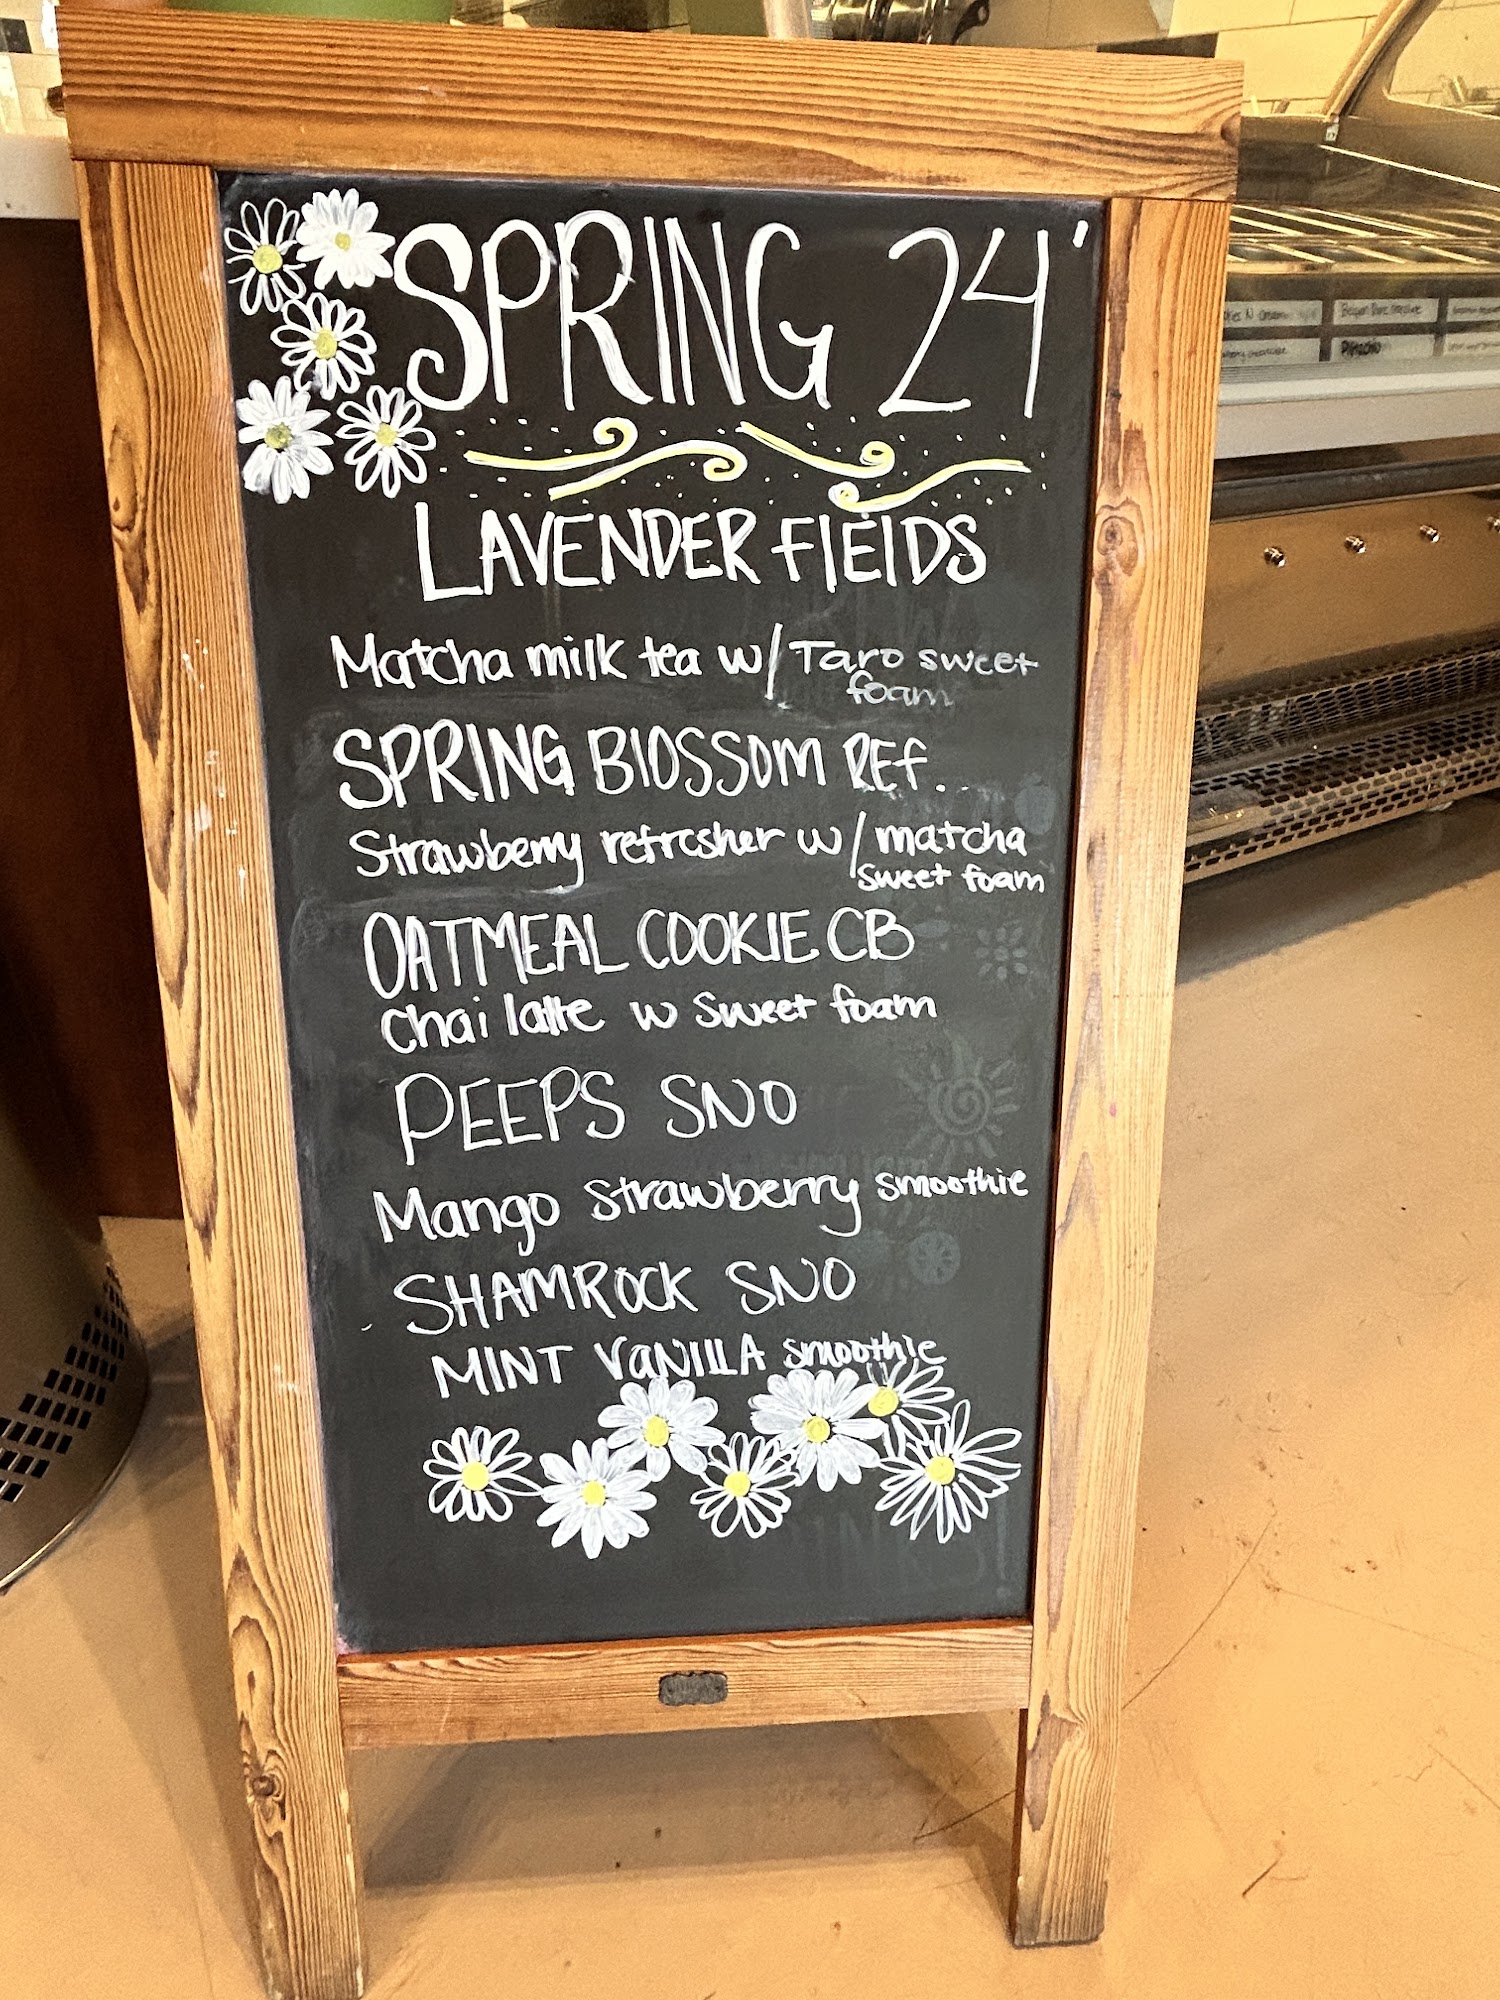 SPRING 24'
LAVENDER FIELDS
Matcha milk tea w/ Taro sweet
foam
SPRING BLOSSOM REF.
Strawberry refresher w/ matcha
sweet foam
OATMEAL COOKIE CB
Chai latte w sweet foam
PEEPS SNO
Mango Strawberry smoothie
SHAMROCK SNO
MINT VANILLA smoothie
Pistachio